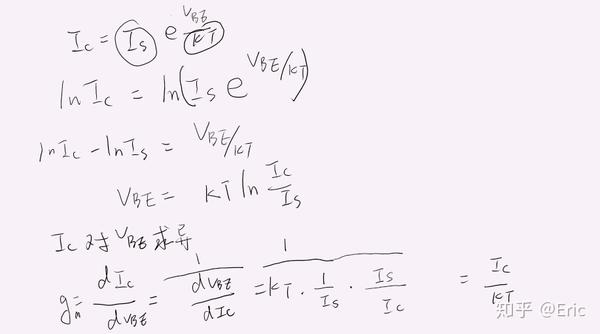 Ic = Is e^(VBE/KT)
ln Ic = ln(Is e^(VBE/KT))
ln Ic - ln Is = VBE/KT
VBE = KT ln Ic/Is
Ic 对 VBE 求导
gm = dIc/dVBE = 1/(dVBE/dIc) = 1/(KT · 1/Is · Is/Ic) = Ic/KT
知乎 @Eric